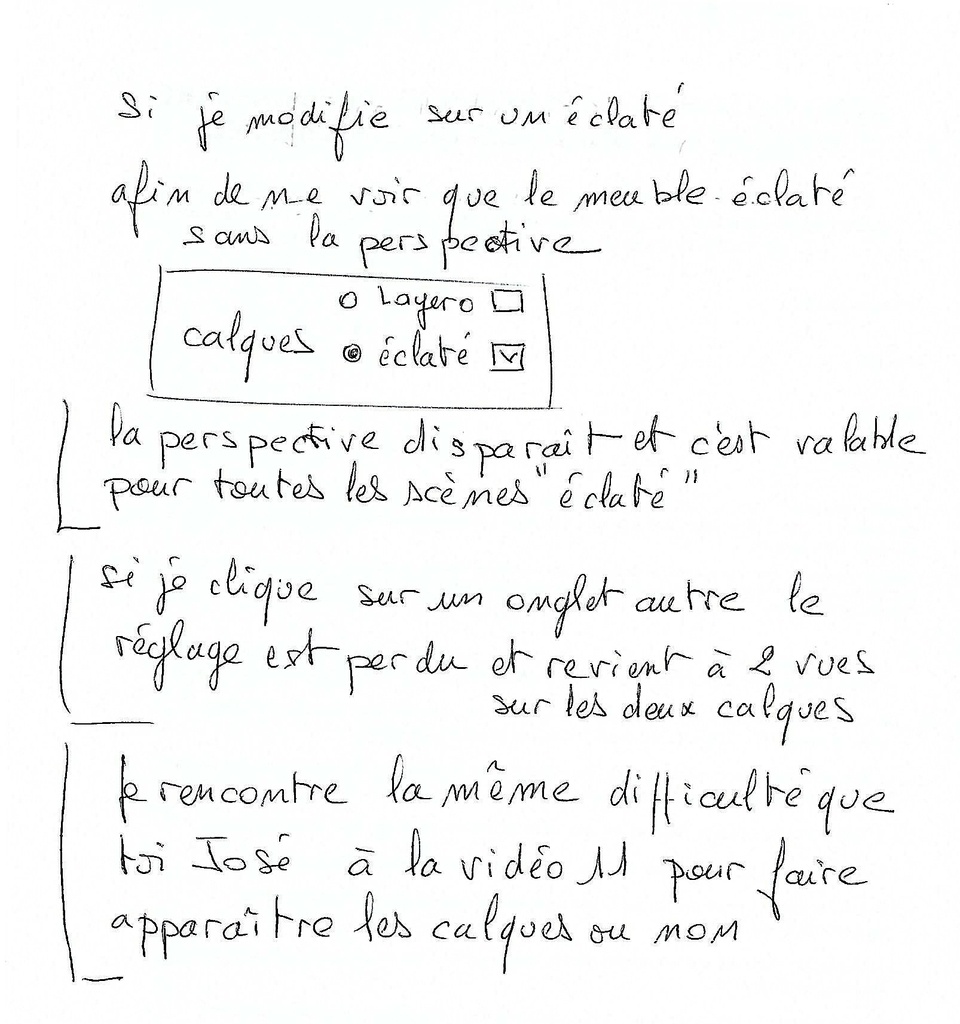 si je modifie sur un éclaté
afin de ne voir que le meuble éclaté
sans la perspective
o Layer0 □
calques ◉ éclaté ☑
la perspective disparaît et c'est valable
pour toutes les scènes "éclaté"
si je clique sur un onglet autre le
réglage est perdu et revient à 2 vues
sur les deux calques
je rencontre la même difficulté que
toi José à la vidéo 11 pour faire
apparaître les calques ou non